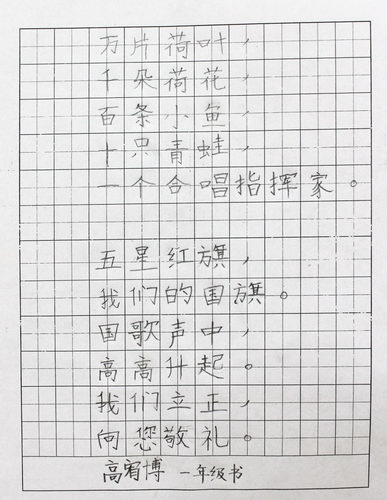 万片荷叶，
千朵荷花，
百条小鱼，
十只青蛙，
一个合唱指挥家。
五星红旗，
我们的国旗。
国歌声中，
高高升起。
我们立正，
向您敬礼。
高宥博 一年级书